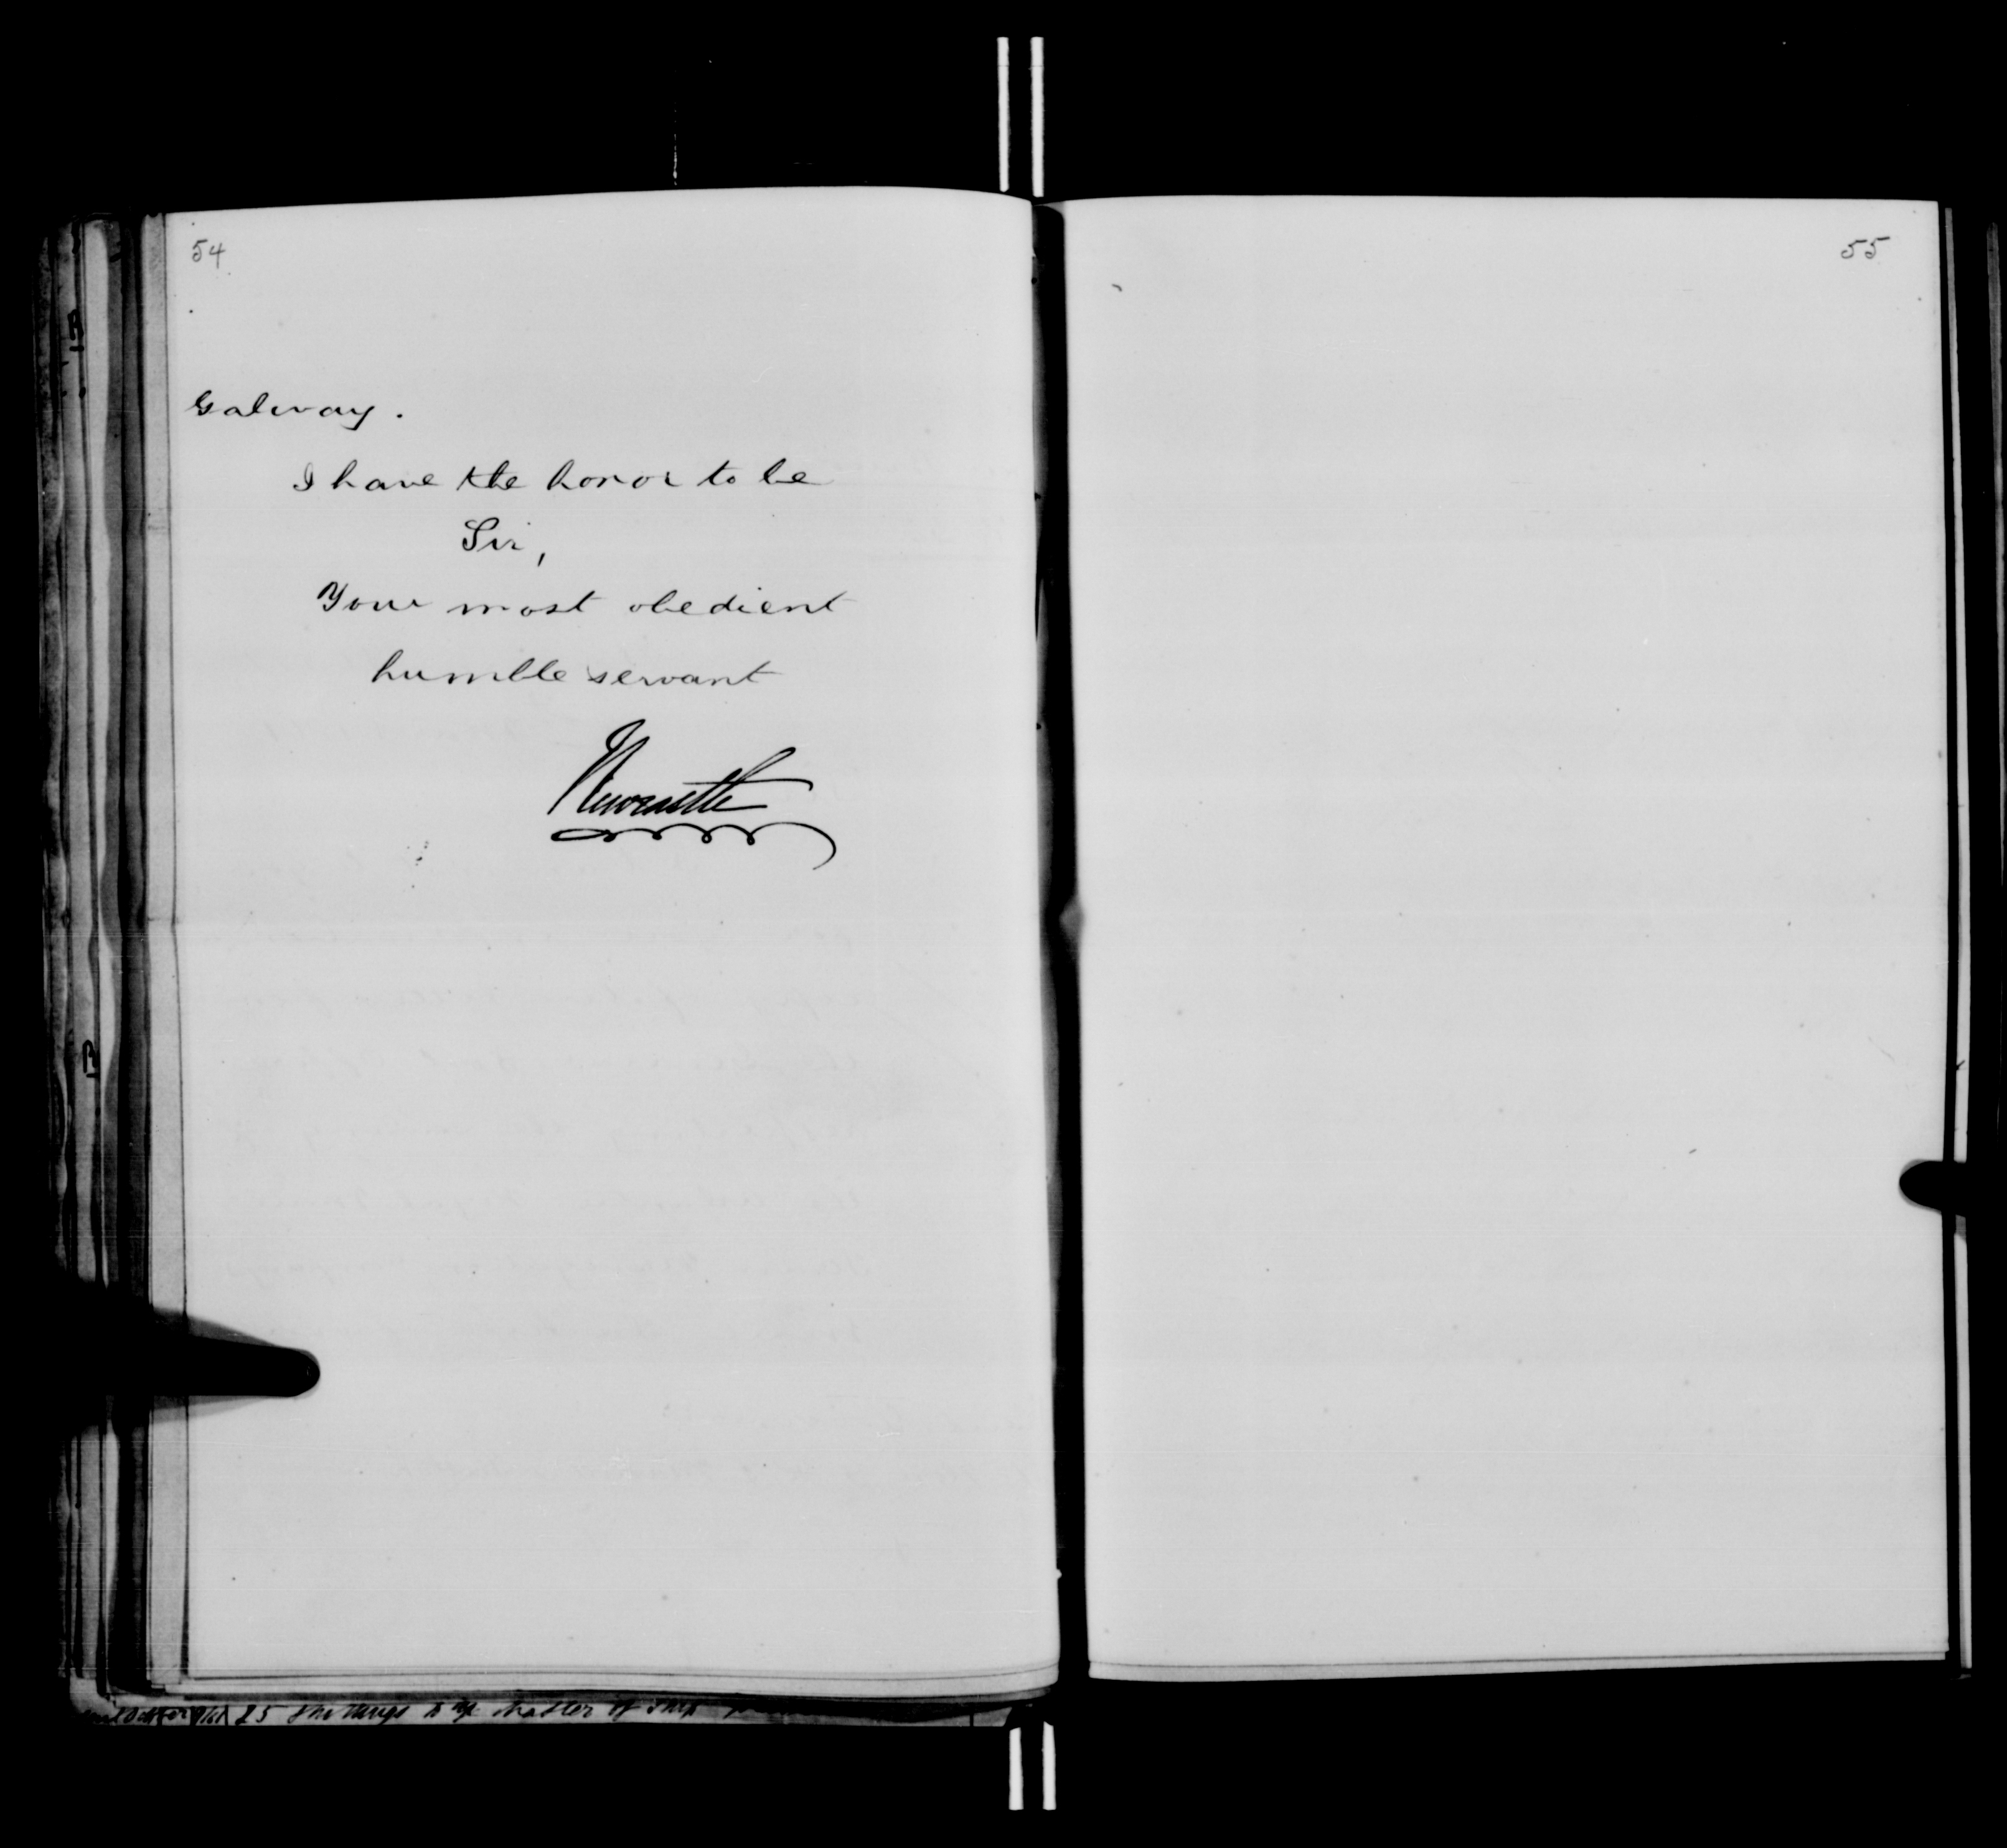 54
Galway.
I have the honor to be
Sir,
Your most obedient
humble servant
Newcastle
55
A
B
25 shillings to Master of Ship